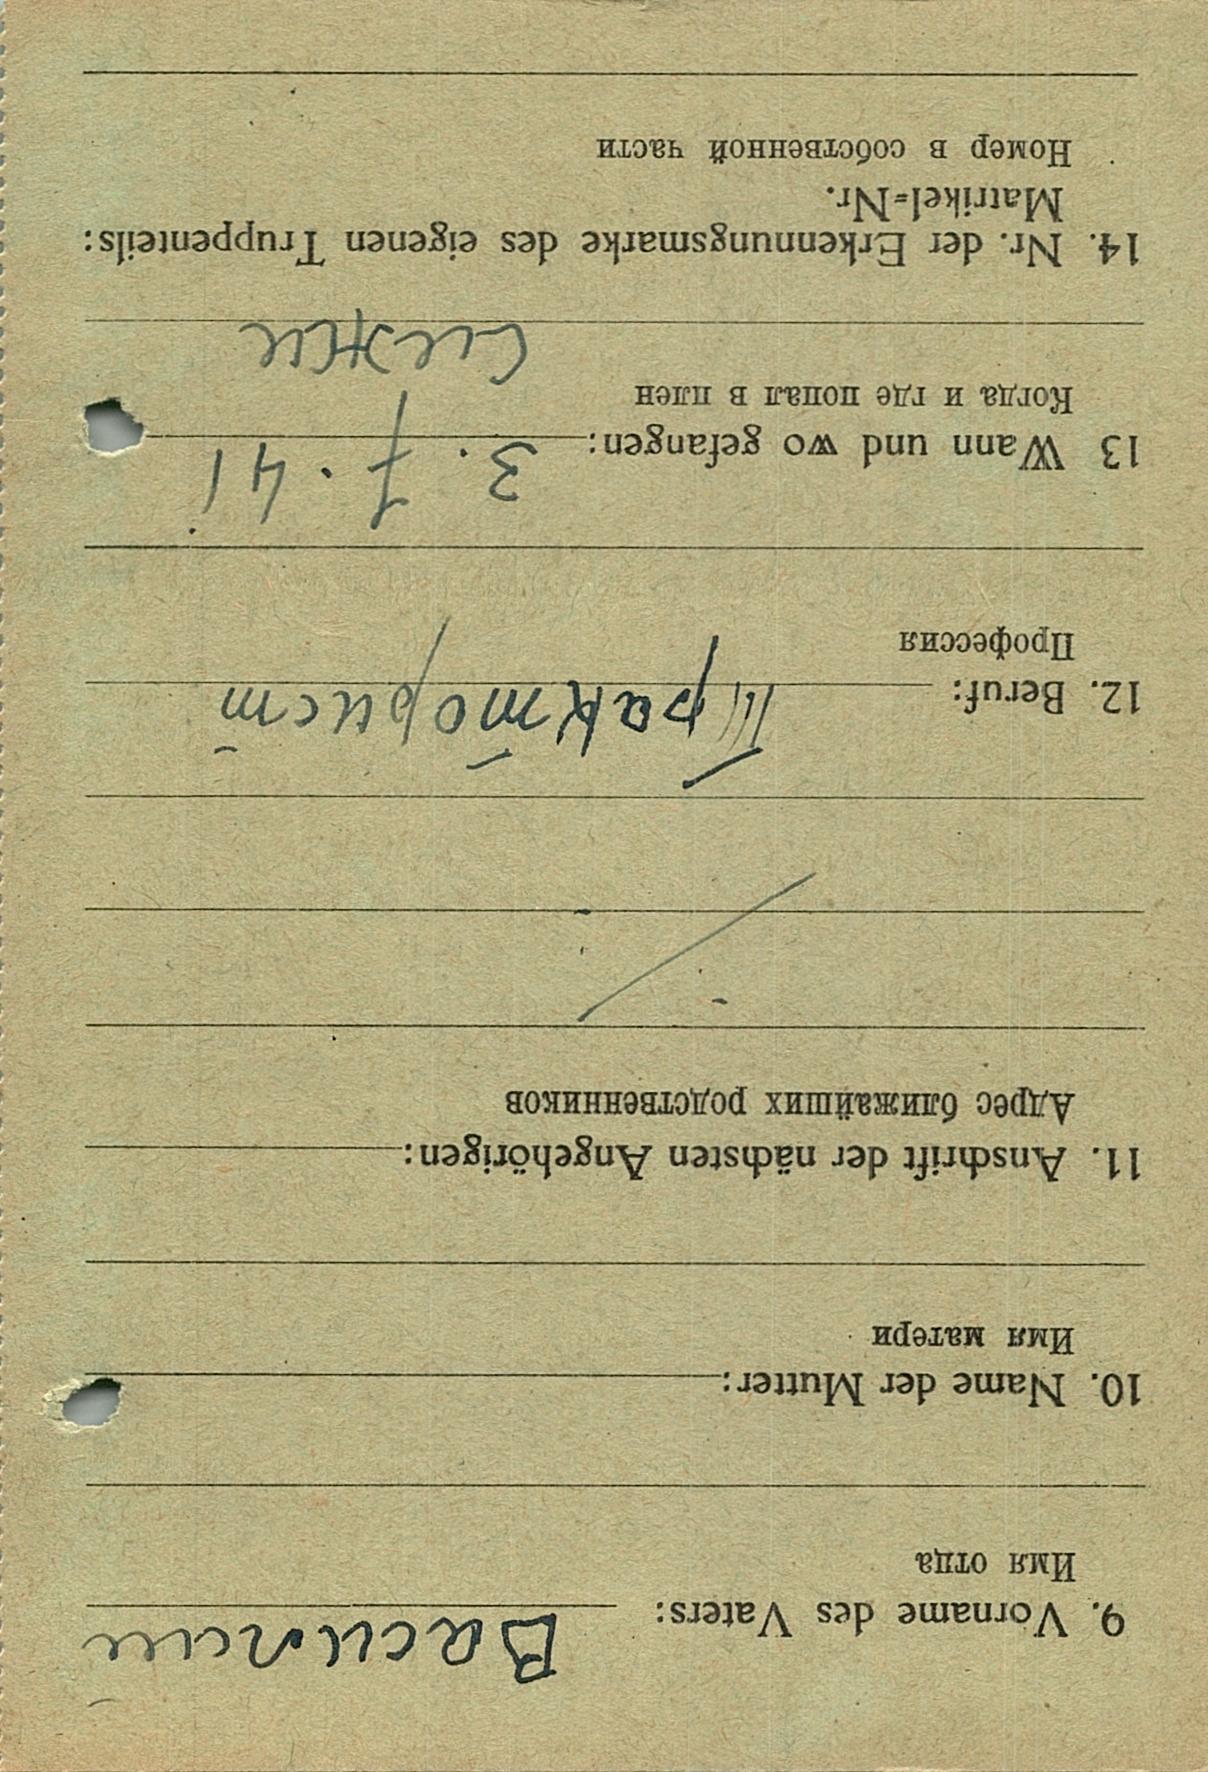 9. Vorname des Vaters: Василий
Имя отца
10. Name der Mutter:
Имя матери
11. Anschrift der nächsten Angehörigen:
Адрес ближайших родственников
12. Beruf: Тракторист
Профессия
13 Wann und wo gefangen: 3. 7. 41
Когда и где попал в плен
14. Nr. der Erkennungsmarke des eigenen Truppenteils:
Matrikel=Nr.
Номер в собственной части